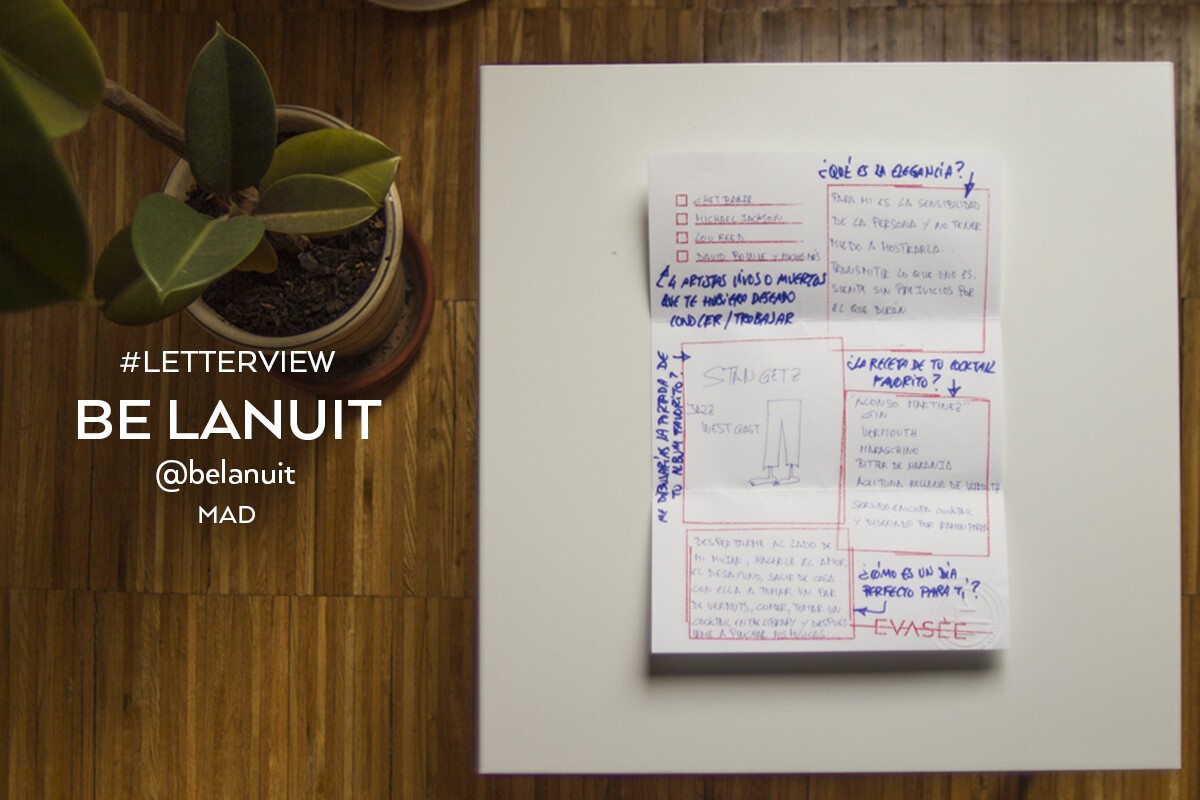 #LETTERVIEW
BE LANUIT
@belanuit
MAD
¿QUÉ ES LA ELEGANCIA?
PARA MI ES LA SENSIBILIDAD
DE LA PERSONA Y NO TENER
MIEDO A MOSTRARLA...
TRANSMITIR LO QUE UNO ES,
SIENTE SIN PREJUICIOS POR
EL QUE DIRÁN
CHET BAKER
MICHAEL JACKSON
LOU REED
DAVID BOWIE Y MUCHOS MÁS
4 ARTISTAS VIVOS O MUERTOS
QUE TE HUBIERA DESEADO
CONOCER/TRABAJAR
ME DIBUJARÍAS LA PORTADA DE
TU ALBUM FAVORITO?
STAN GETZ
JAZZ
WEST COAST
¿LA RECETA DE TU COCKTAIL
FAVORITO?
"ALONSO MARTINEZ"
GIN
VERMOUTH
MARASCHINO
BITTER DE NARANJA
ACEITUNA RELLENA DE
SERVIDO EN COPA COCKTAIL
Y DISEÑADO POR RAMON
DESPERTARME AL LADO DE
MI MUJER, HACERLE EL AMOR,
EL DESAYUNO, SALIR DE CASA
CON ELLA A TOMAR UN PAR
DE VERMUTS, COMER, TOMAR UN
COCKTAIL EN THE LIBRARY Y DESPUES
IRME A PINCHAR MIS MUSICAS
¿CÓMO ES UN DÍA
PERFECTO PARA TI?
EVASÈE